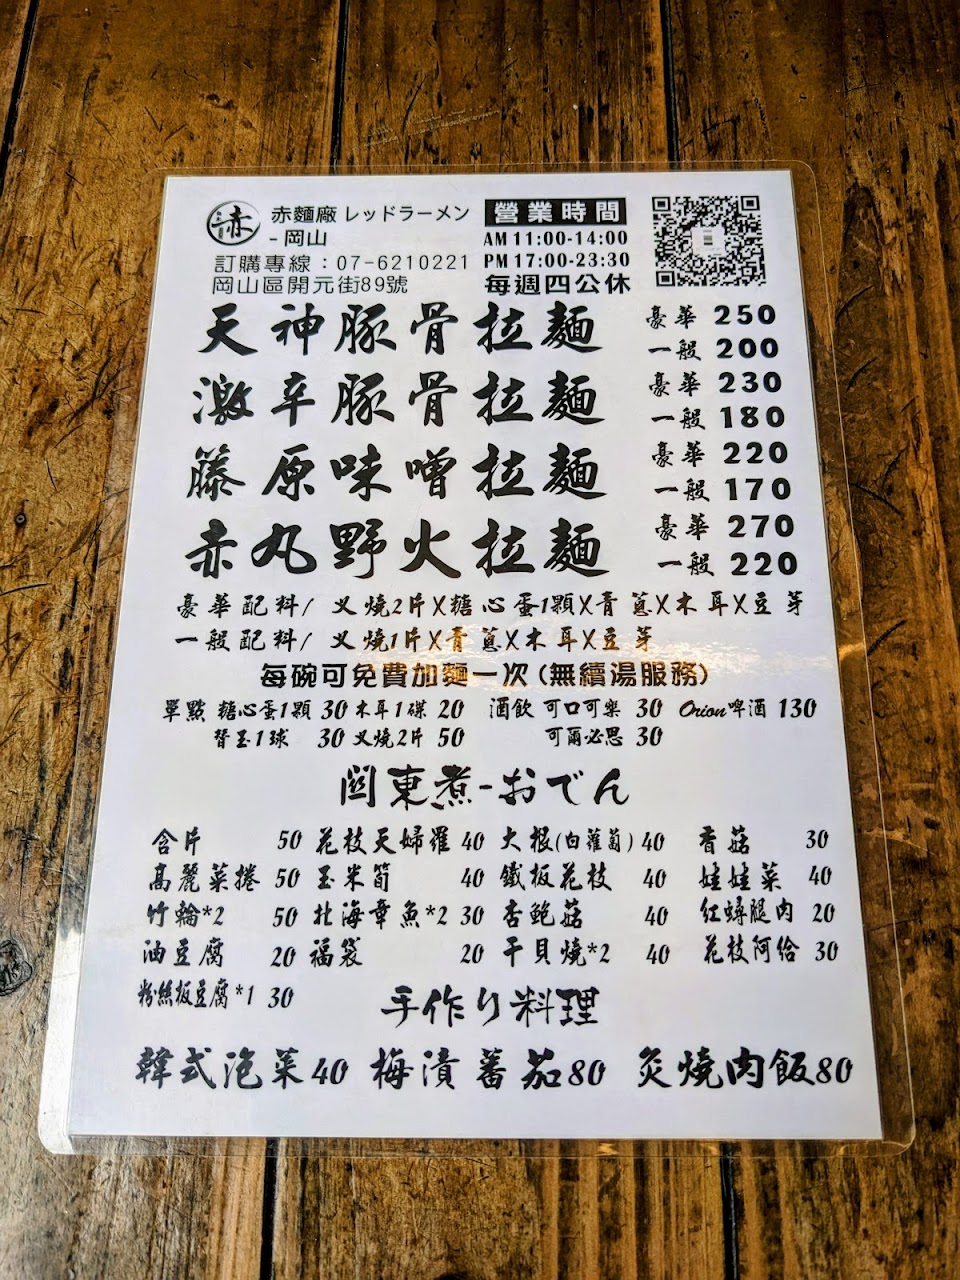 赤麵廠 レッドラーメン
-岡山
訂購專線：07-6210221
岡山區開元街89號
營業時間
AM 11:00-14:00
PM 17:00-23:30
每週四公休
天神豚骨拉麵 豪華 250
一般 200
激辛豚骨拉麵 豪華 230
一般 180
藤原味噌拉麵 豪華 220
一般 170
赤丸野火拉麵 豪華 270
一般 220
豪華配料/ 叉燒2片X糖心蛋1顆X青蔥X木耳X豆芽
一般配料/ 叉燒1片X青蔥X木耳X豆芽
每碗可免費加麵一次(無續湯服務)
單點 糖心蛋1顆 30 木耳1碟 20 酒飲 可口可樂 30 Orion啤酒 130
替玉1球 30 叉燒2片 50 可爾必思 30
關東煮-おでん
含片 50 花枝天婦羅 40 大根(白蘿蔔) 40 香菇 30
高麗菜捲 50 玉米筍 40 鐵板花枝 40 娃娃菜 40
竹輪*2 50 北海章魚*2 30 杏鮑菇 40 紅蟳腿肉 20
油豆腐 20 福袋 20 干貝燒*2 40 花枝阿給 30
粉絲板豆腐*1 30
手作り料理
韓式泡菜40 梅漬蕃茄80 炙燒肉飯80